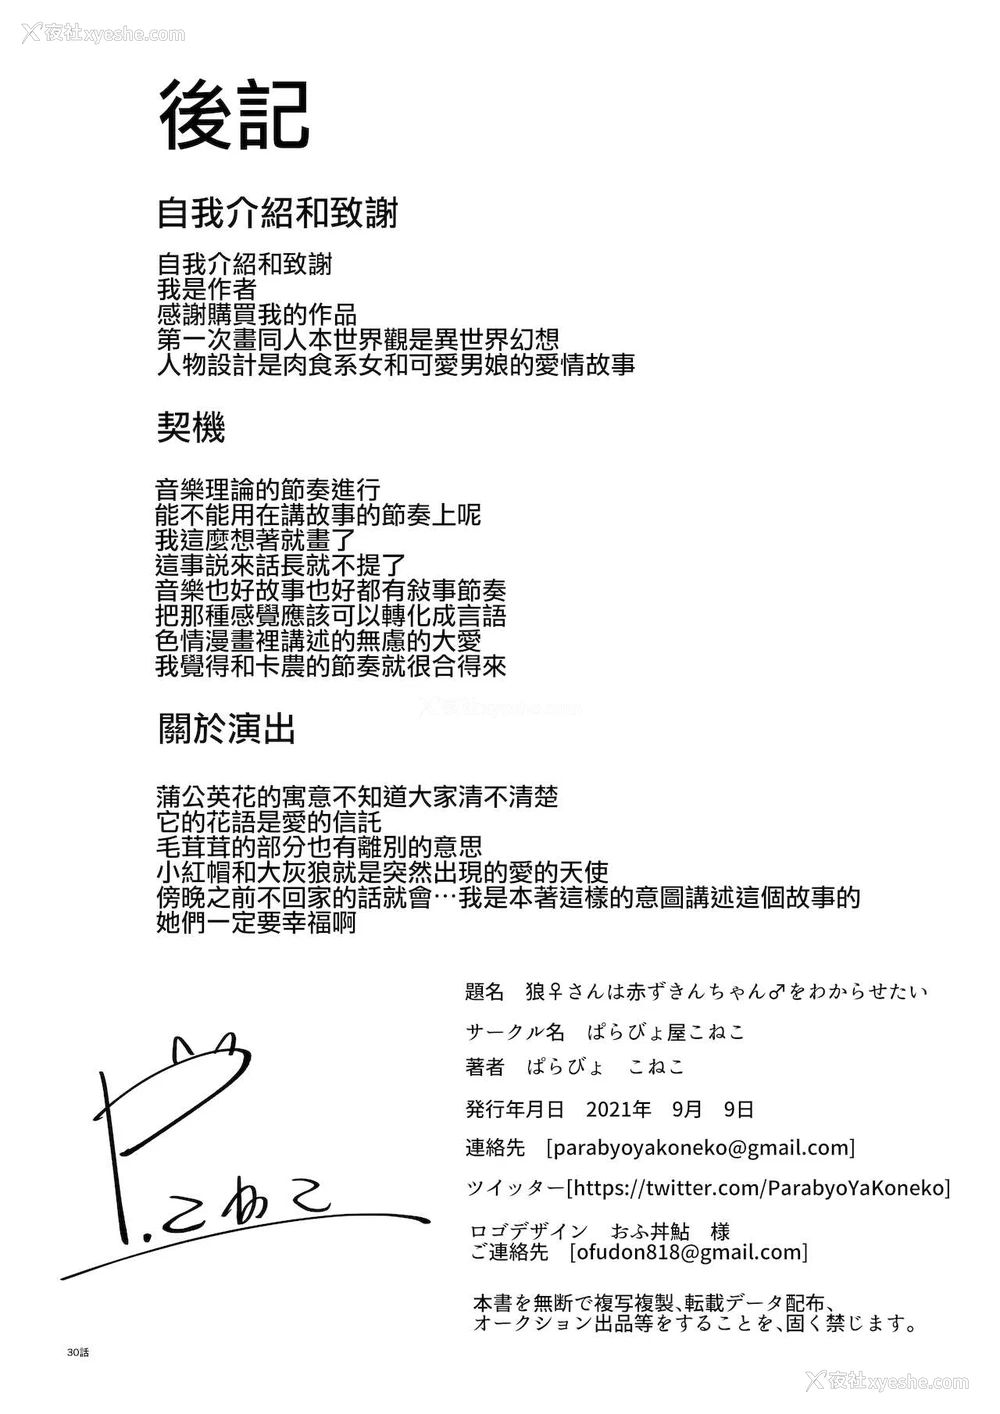 夜社xyeshe.com
後記
自我介紹和致謝
自我介紹和致謝
我是作者
感謝購買我的作品
第一次畫同人本世界觀是異世界幻想
人物設計是肉食系女和可愛男娘的愛情故事
契機
音樂理論的節奏進行
能不能用在講故事的節奏上呢
我這麼想著就畫了
這事説來話長就不提了
音樂也好故事也好都有敍事節奏
把那種感覺應該可以轉化成言語
色情漫畫裡講述的無慮的大愛
我覺得和卡農的節奏就很合得來
夜社xyeshe.com
關於演出
蒲公英花的寓意不知道大家清不清楚
它的花語是愛的信託
毛茸茸的部分也有離別的意思
小紅帽和大灰狼就是突然出現的愛的天使
傍晚之前不回家的話就會…我是本著這樣的意圖講述這個故事的
她們一定要幸福啊
題名　狼♀さんは赤ずきんちゃん♂をわからせたい
サークル名　ぱらびょ屋こねこ
著者　ぱらびょ　こねこ
発行年月日　2021年　9月　9日
連絡先　[parabyoyakoneko@gmail.com]
ツイッター[https://twitter.com/ParabyoYaKoneko]
ロゴデザイン　おふ丼鮎　様
ご連絡先　[ofudon818@gmail.com]
本書を無断で複写複製、転載データ配布、
オークション出品等をすることを、固く禁じます。
P.こねこ
30話
夜社xyeshe.com